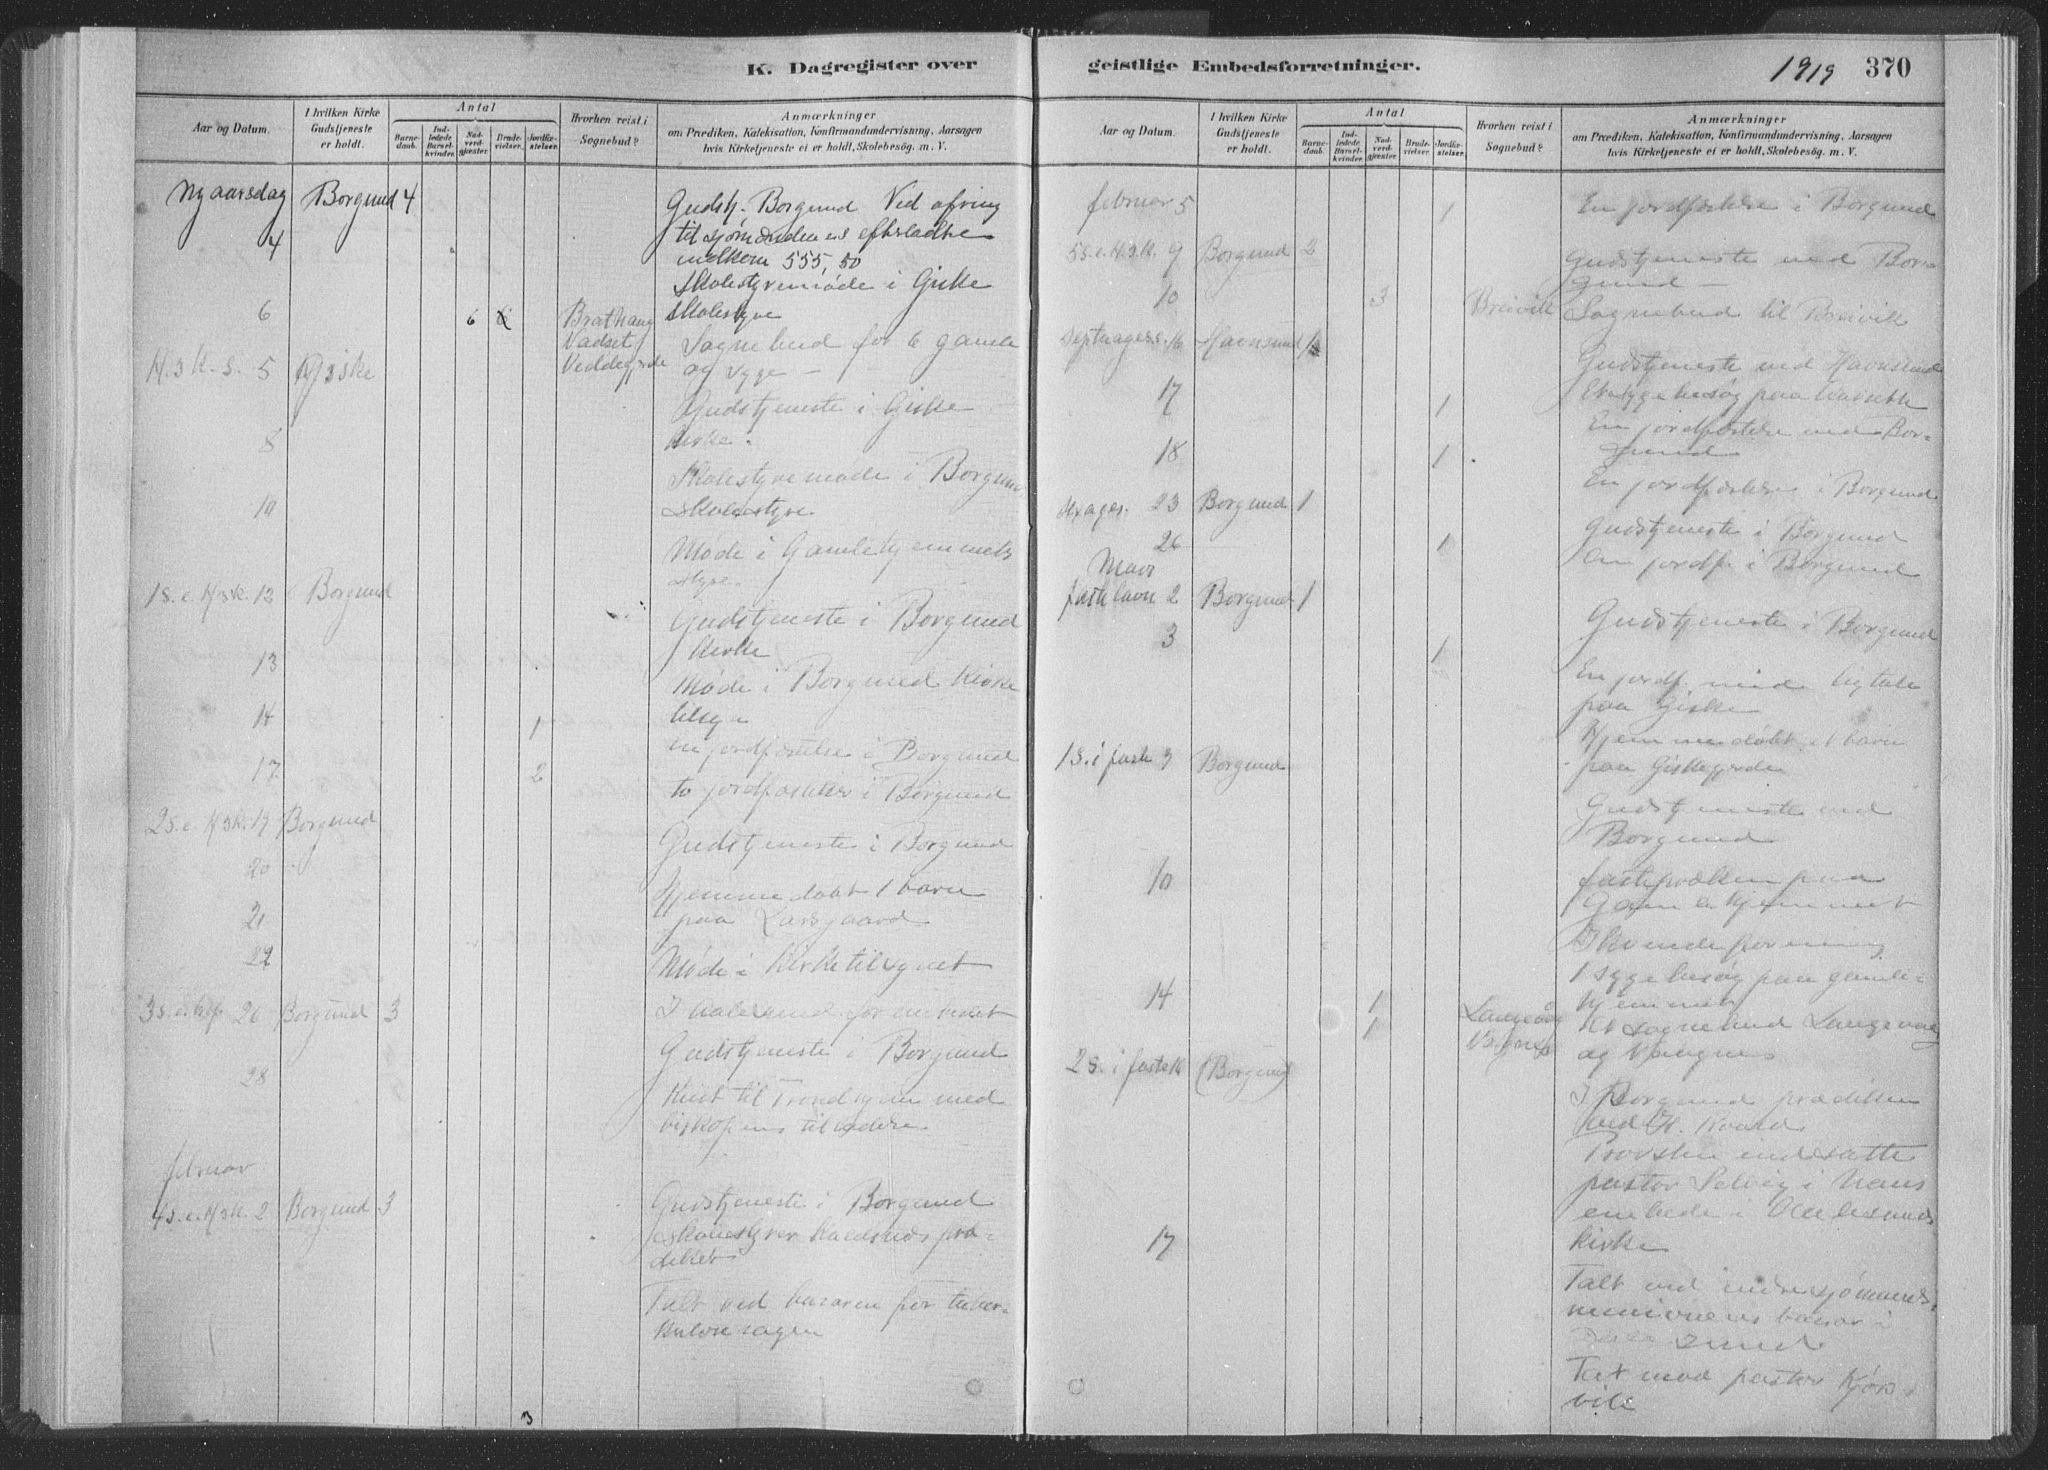 K. Dagregister over
Aar og Datum.
I hvilken Kirke Gudstjeneste er holdt.
Antal
Barnedaab.
Indledede Barselkvinder.
Nadverdgjester.
Brudevielser.
Jordfæstelser.
Hvorhen reist i Sognebud?
Anmærkninger
om Prædiken, Katekisation, Konfirmandundervisning, Aarsagen
hvis Kirketjeneste ei er holdt, Skolebesøg. m. V.
Nyaarsdag Borgund 4
Gudstj. Borgund Ved ofring
til sjømændenes efterladte
indkom 555,50
4
Skolestyremøde i Giske
Skolestyre
6 6 Vadset
Sognebud for 6 gamle
og syge -
H. 3 K. s. 5 Giske
Gudstjeneste i Giske
kirke.
8
Skolestyremøde i Borgund
Skolestyre
10
Møde i Gamlehjemmets
styre.
1 s. e. H3K. 12 Borgund
Gudstjeneste i Borgund
Kirke
13
Møde i Borgund Kirke
tilsyn
14 1
en jordfæstelse i Borgund
17 2
to jordfæstelser i Borgund
2 s. e. H3K. 19 Borgund
Gudstjeneste i Borgund
20
Hjemmedøbt 1 barn
paa Larsgaard
21
Møde i Kirketilsynet
22
I Aalesund
3 s. e. 26 Borgund 3
Gudstjeneste i Borgund
28
Reist til Trondhjem med
biskopens tilladelse.
februar
4 s. e. H3K. 2 Borgund 3
Gudstjeneste i Borgund
Talt ved basaren for tuber-
kulosesagen
3
geistlige Embedsforretninger.
1919 370
Aar og Datum.
I hvilken Kirke Gudstjeneste er holdt.
Antal
Barnedaab.
Indledede Barselkvinder.
Nadverdgjester.
Brudevielser.
Jordfæstelser.
Hvorhen reist i Sognebud?
Anmærkninger
om Prædiken, Katekisation, Konfirmandundervisning, Aarsagen
hvis Kirketjeneste ei er holdt, Skolebesøg. m. V.
februar 5 1
En jordfæstelse i Borgund
5 s. e. H.3.K. 9 Borgund 2
Gudstjeneste ved Bor-
gund -
10 3 Breivik
Sognebud til Breivik
Septuages. 16 Havnsund 1
Gudstjeneste ved Havnsund
Et sygebesøg paa
17 1
En jordfæstelse ved Bor-
gund
18 1
En jordfæstelse i Borgund
Sexages. 23 Borgund 1
Gudstjeneste i Borgund
26 1
en jordf. i Borgund
Mars
fastelavn 2 Borgund 1
Gudstjeneste i Borgund
3 1
En jordf. med ligtale
paa Giske
Hjemmedøbt et barn
paa Giskegjerde
1 s. i faste 9 Borgund
Gudstjeneste ved
Borgund
10
fasteprædiken paa
Gamlehjemmet
I kvindeforening
1 sygebesøg paa gamle-
hjemmet
14 1 Langevåg
1
Et sognebud Langevaag
og
2 s. i faste 16 (Borgund)
I Borgund prædiken
ved
Provsten indsatte
pastor Selvig i hans
embede i Aalesunds
kirke
17
Talt ved indre sjømands
missionens basar i
Aalesund
Talt med pastor Kjøs-
vik